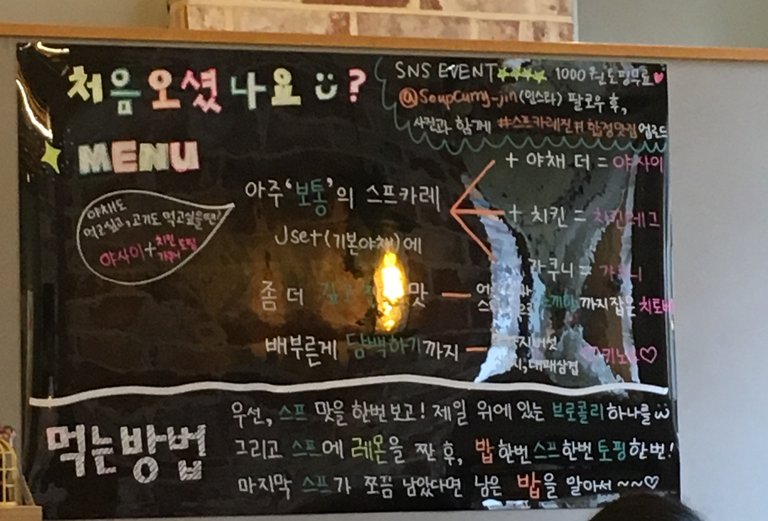 처음 오셨나요 ?
SNS EVENT 1000원 토핑무료
@SoupCurry-jin(인스타) 팔로우 후,
사진과 함께 #스프카레진 #합정맛집 업로드
MENU
야채도
먹고싶고, 고기도 먹고싶을땐!
야사이+치킨 토핑
아주 '보통'의 스프카레
Jset(기본야채)에
+ 야채 더 = 야사이
+ 치킨 = 치킨레그
카쿠니 = 카쿠니
좀 더 맛 — 까지잡은 치토베
배부른게 담백하기까지 —
대패삼겹
먹는방법
우선, 스프 맛을 한번보고! 제일 위에 있는 브로콜리 하나를
그리고 스프에 레몬을 짠 후, 밥한번 스프한번 토핑한번!
마지막 스프가 쪼끔 남았다면 남은 밥을 말아서 ~~♡